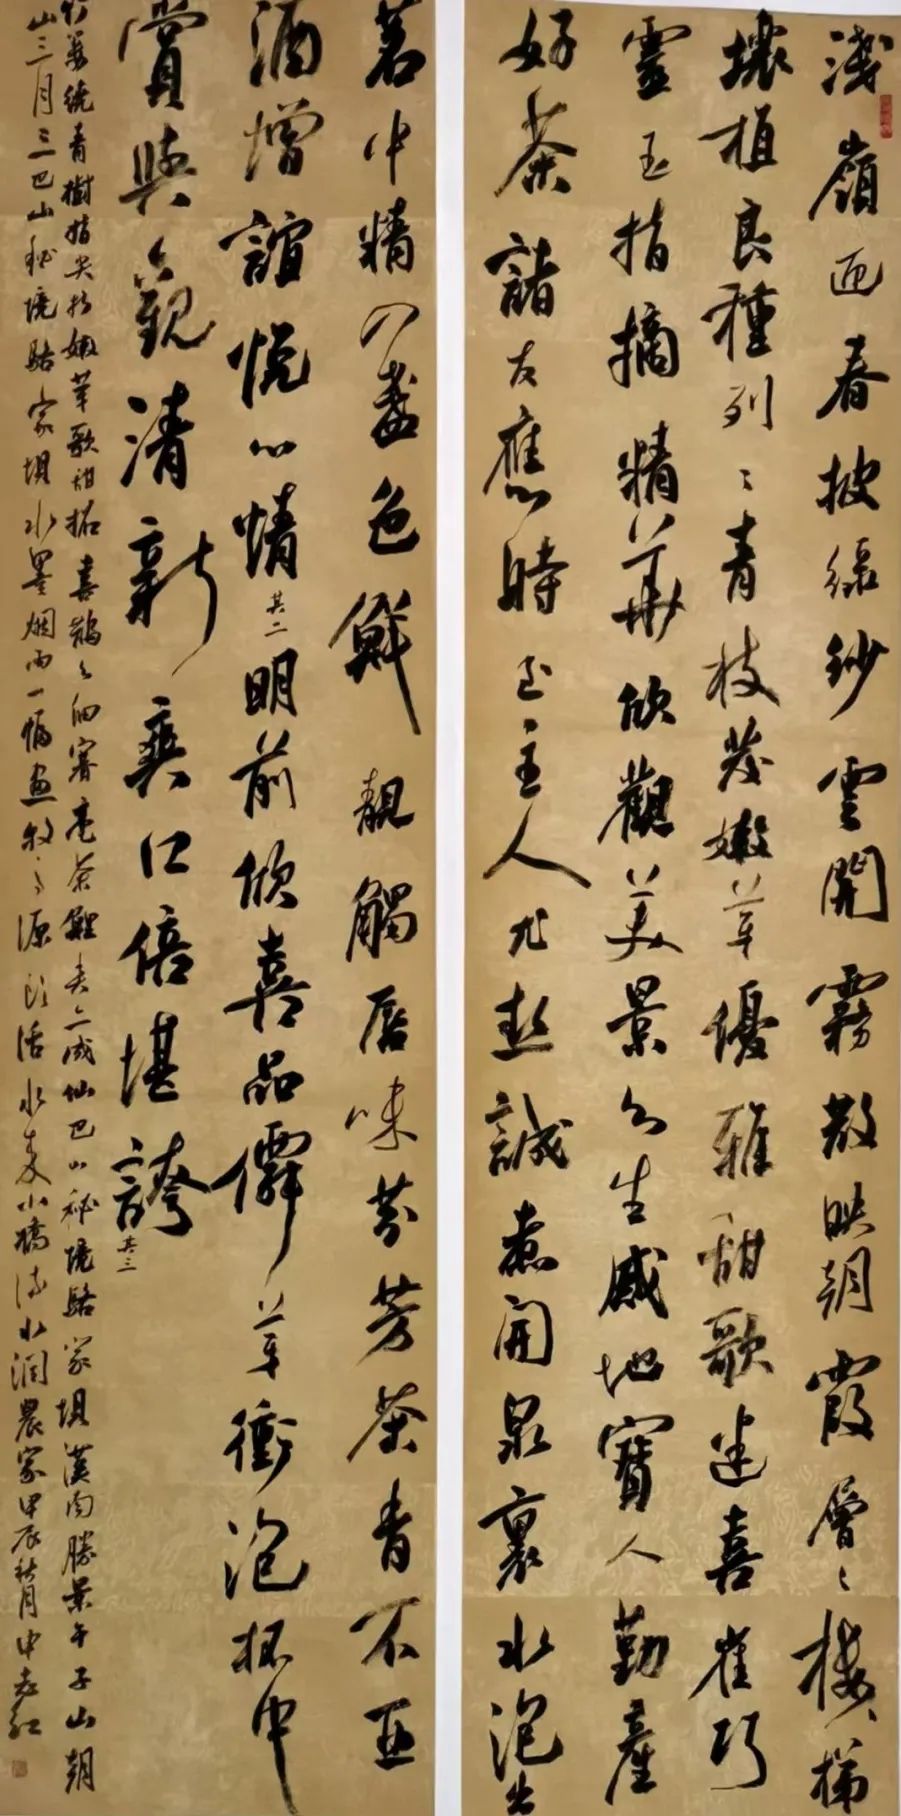 淺嶺迎春披綠紗雲開霧散映朝霞層〻樓梯
壤植良種列〻青枝茂嫩芽優雅甜歌迷喜雀巧
靈玉指摘精華欣觀美景公生感地寶人勤產
好茶諸友應時至主人尤熱誠煮開泉裏水泡出
茗中精入盞色鮮靚觸唇味芬芳茶青不亞
酒增誼悅心情其二明前欣喜品僻芽衝泡杯中
賞與觀清新爽口倍堪誇其三
青樹指尖拈嫩芽歌甜招喜鵲〻細審毫茶難亦成仙巴山秘境駱家壩漢南勝景午子山朝
山三月三巴山秘境駱家壩水墨烟雨一幅畫牧之源頭活水來小橋流水潤農家甲辰秋月中志紅